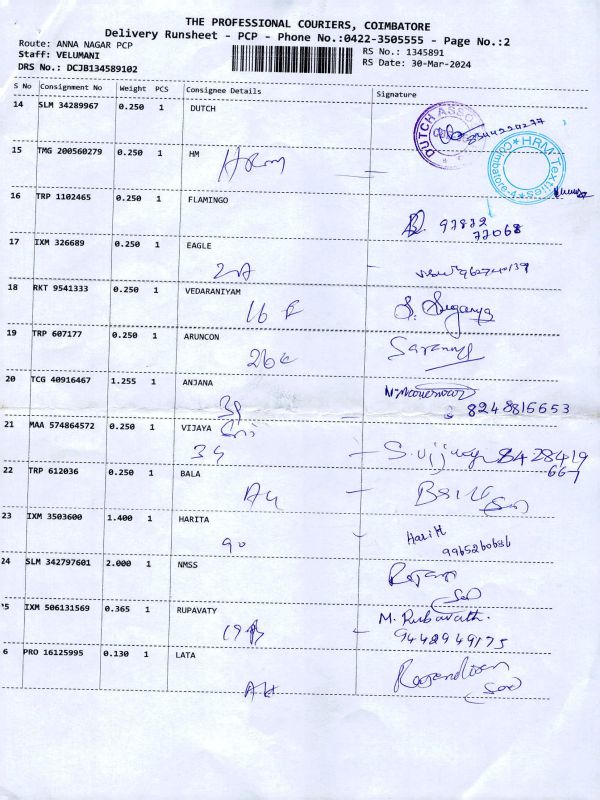 THE PROFESSIONAL COURIERS, COIMBATORE
Delivery Runsheet - PCP - Phone No.:0422-3505555 - Page No.:2
Route: ANNA NAGAR PCP
Staff: VELUMANI
DRS No.: DCJB134589102
RS No.: 1345891
RS Date: 30-Mar-2024
S No Consignment No Weight PCS Consignee Details Signature
14 SLM 34289967 0.250 1 DUTCH
DUTCH ASSO
15 TMG 200560279 0.250 1 HM
HRM Textiles Coimbatore-4
16 TRP 1102465 0.250 1 FLAMINGO
97872
77068
17 IXM 326689 0.250 1 EAGLE
18 RKT 9541333 0.250 1 VEDARANIYAM
16 F S. Suganya
19 TRP 607177 0.250 1 ARUNCON
26c Saranya
20 TCG 40916467 1.255 1 ANJANA
8248815653
21 MAA 574864572 0.250 1 VIJAYA
34 S. Vijaya 8428419
667
22 TRP 612036 0.250 1 BALA
23 IXM 3503600 1.400 1 HARITA
90 Harit
9965260686
24 SLM 342797601 2.000 1 NMSS
5 IXM 506131569 0.365 1 RUPAVATY
M. Rubavath.
9442949175
6 PRO 16125995 0.130 1 LATA